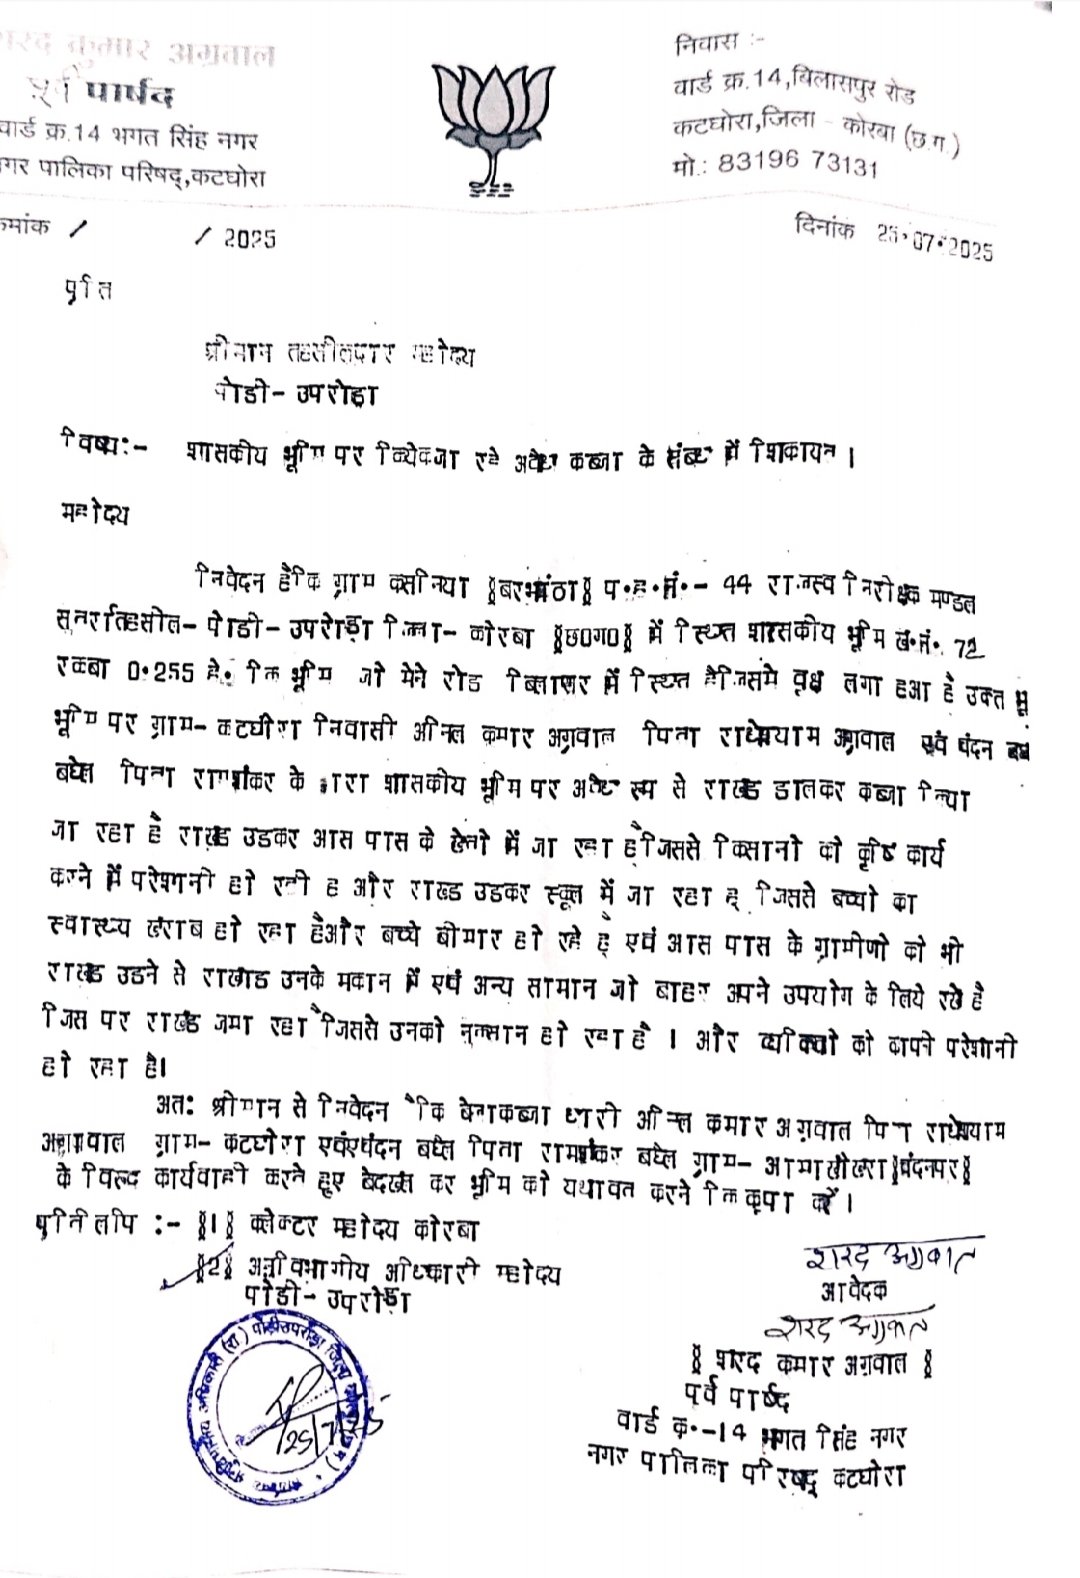 शरद कुमार अग्रवाल
पूर्व पार्षद
वार्ड क्र.14 भगत सिंह नगर
नगर पालिका परिषद्,कटघोरा
निवास :-
वार्ड क्र.14,बिलासपुर रोड
कटघोरा,जिला - कोरबा (छ.ग.)
मो.: 83196 73131
क्रमांक / / 2025
दिनांक 25.07.2025
प्रति
श्रीमान तहसीलदार महोदय
पोडी- उपरोडा
विषय:- शासकीय भूमि पर किये जा रहे अवैध कब्जा के संबध में शिकायत ।
महोदय
निवेदन है कि ग्राम कसनिया (बरभांठा) प.ह.नं.- 44 राजस्व निरीक्षक मण्डल
सुतर्रा तहसील- पोडी- उपरोडा जिला- कोरबा (छ0ग0) में स्थित शासकीय भूमि ख.नं. 72
रकबा 0.255 हे. कि भूमि जो मेने रोड बिलासपुर में स्थित है जिसमे वृक्ष लगा हुआ है उक्त
भूमि पर ग्राम- कटघोरा निवासी अनिल कुमार अग्रवाल पिता राधेश्याम अग्रवाल एवं चंदन
बघेल पिता रामशंकर के द्वारा शासकीय भूमि पर अवैध रूप से राखड डालकर कब्जा किया
जा रहा है राखड उडकर आस पास के खेतो में जा रहा है जिससे किसानो को कृषि कार्य
करने में परेशानी हो रही है और राखड उडकर स्कूल में जा रहा है जिससे बच्चो का
स्वास्थ्य खराब हो रहा है और बच्चे बीमार हो रहे है एवं आस पास के ग्रामीणो को भी
राखड उडने से राखाड उनके मकान में एवं अन्य सामान जो बाहर अपने उपयोग के लिये रखे है
जिस पर राखड जमा रहा है जिससे उनको नुकसान हो रहा है । और व्यक्तियो को काफी परेशानी
हो रहा है।
अत: श्रीमान से निवेदन है कि बेजाकब्जा धारी अनिल कुमार अग्रवाल पिता राधेश्याम
अग्रवाल ग्राम- कटघोरा एवं चंदन बघेल पिता रामशंकर बघेल ग्राम- आमाखोखरा (चंदनपुर)
के विरूद कार्यवाही करते हुए बेदखल कर भूमि को यथावत करने कि कृपा करें ।
प्रतिलिपि :- (1) कलेक्टर महोदय कोरबा
(2) अनुविभागीय अधिकारी महोदय
पोडी- उपरोडा
शरद अग्रवाल
आवेदक
शरद अग्रवाल
( शरद कुमार अग्रवाल )
पूर्व पार्षद
वार्ड क्र.-14 भगत सिंह नगर
नगर पालिका परिषद् कटघोरा
अनुविभागीय अधिकारी (रा.) पोड़ीउपरोड़ा जिला कोरबा (छ.ग.)
25/7/25